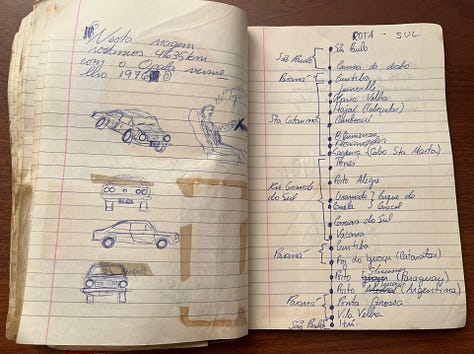 Nesta viagem
rodamos 4635km
com o Opala verme
lho 1976
ROTA - SUL
São Paulo
São Paulo
Paraná
Curitiba
Joinville
Itajaí
Sta Catarina
Camboriú
Blumenau
Florianópolis
Laguna (Cabo Sta Marta)
Torres
Porto Alegre
Rio Grande
do Sul
Gramado } Parque do
Canela Caracol
Caxias do Sul
Vacaria
Curitiba
Paraná
Foz do Iguaçu (Cataratas)
Porto (Paraguay)
Porto Iguazu (Argentina)
Paraná
Ponta Grossa
Vila Velha
São Paulo
Itu